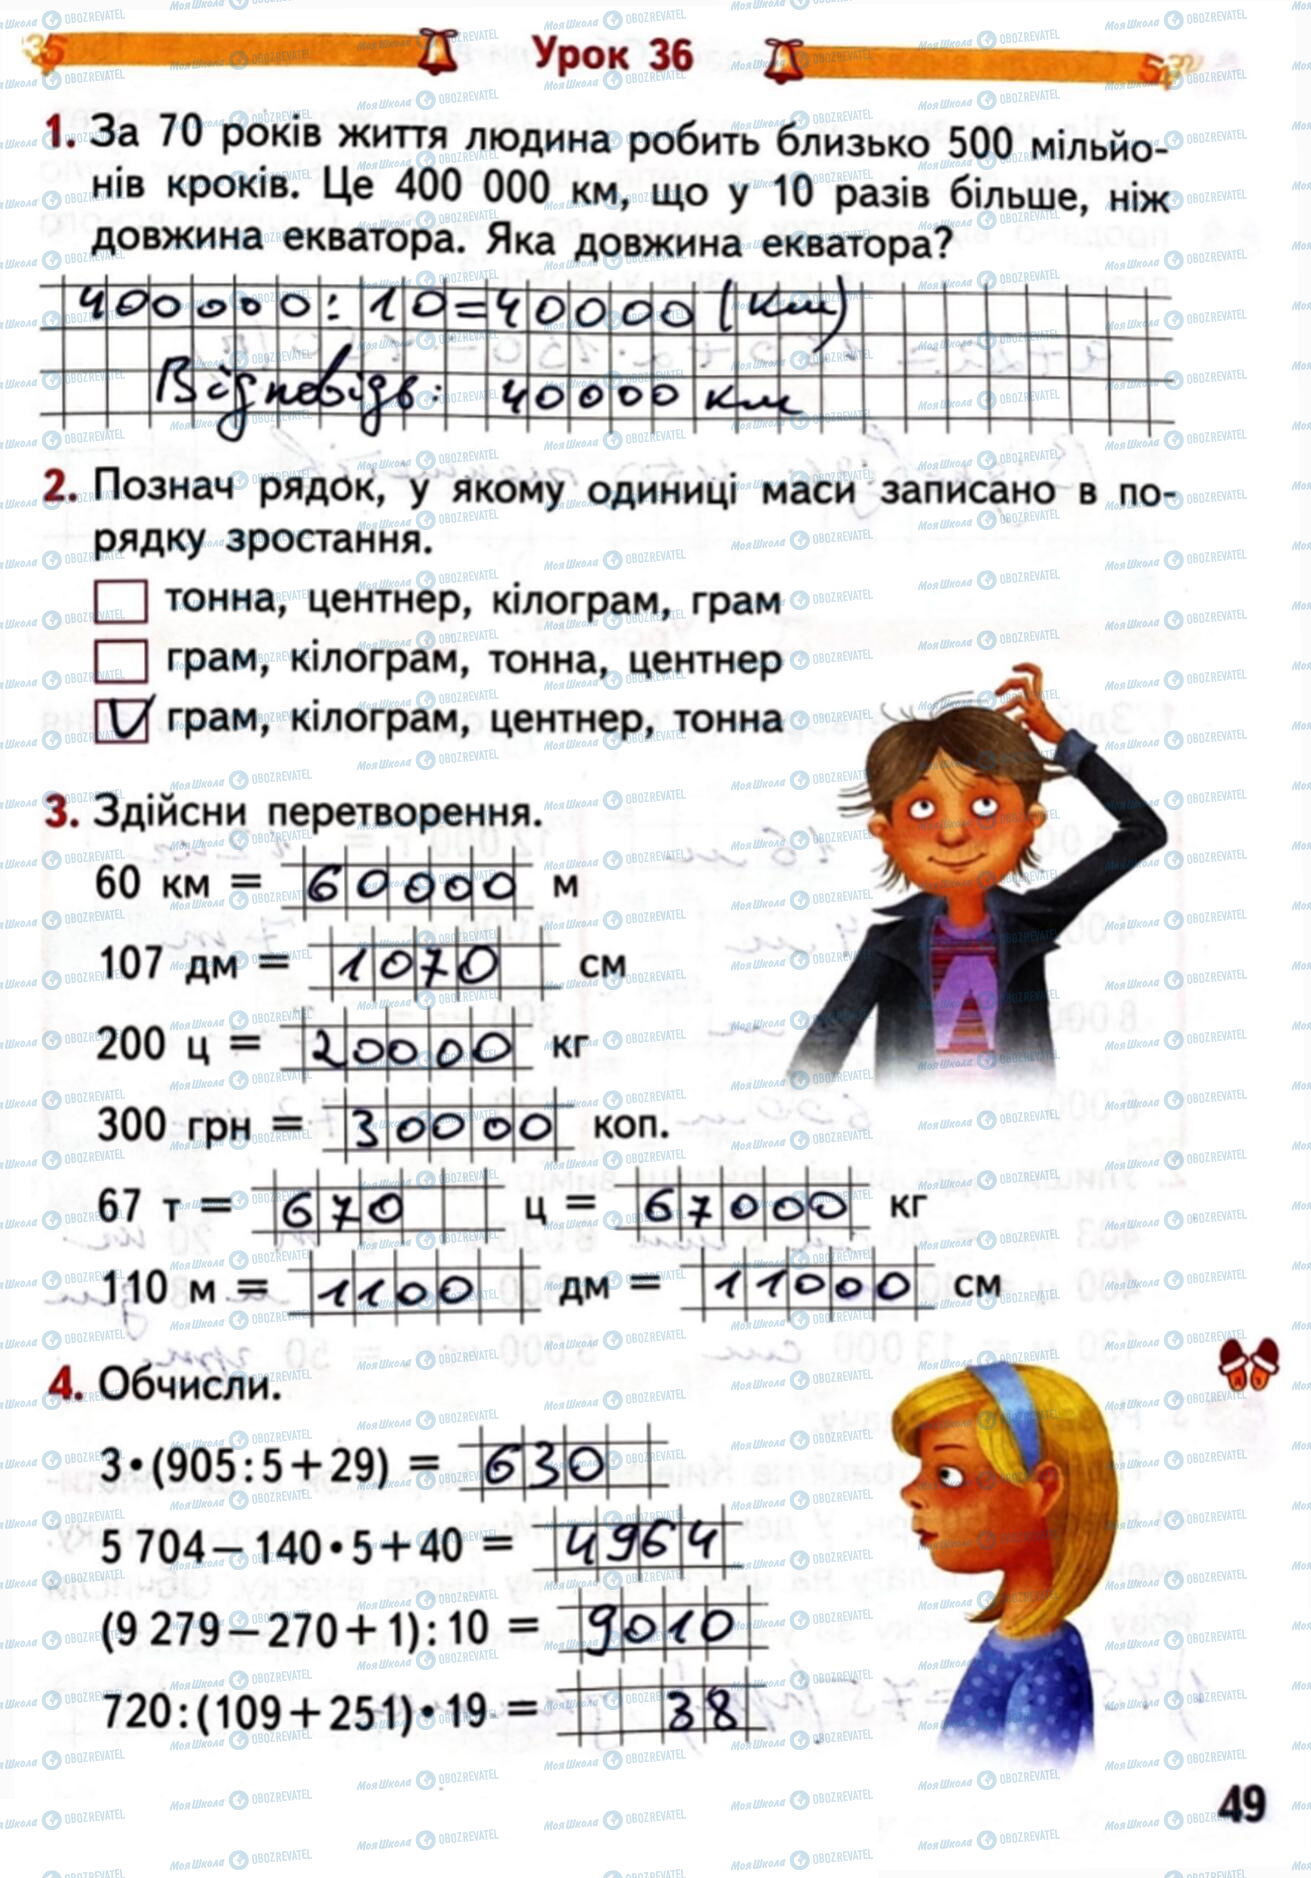 Урок 36
1. За 70 років життя людина робить близько 500 мільйо-
нів кроків. Це 400 000 км, що у 10 разів більше, ніж
довжина екватора. Яка довжина екватора?
400000:10=40000 (км)
Відповідь: 40000 км
2. Познач рядок, у якому одиниці маси записано в по-
рядку зростання.
тонна, центнер, кілограм, грам
грам, кілограм, тонна, центнер
V грам, кілограм, центнер, тонна
3. Здійсни перетворення.
60 км = 60000 м
107 дм = 1070 см
200 ц = 20000 кг
300 грн = 30000 коп.
67 т = 670 ц = 67000 кг
110 м = 1100 дм = 11000 см
4. Обчисли.
3•(905:5+29) = 630
5 704–140•5+40 = 4964
(9 279–270+1):10 = 9010
720:(109+251)•19 = 38
49
МояШкола OBOZREVATEL